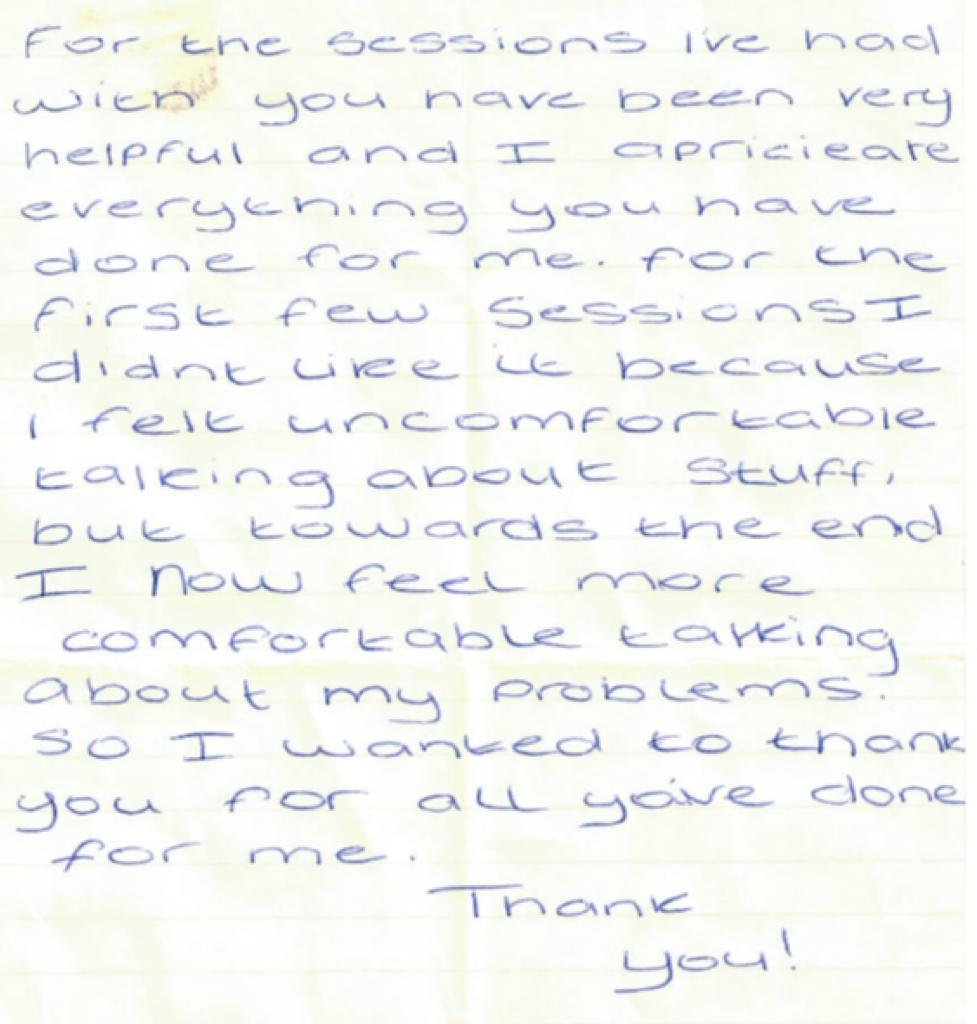 For the sessions I've had
with you have been very
helpful and I apricieate
everything you have
done for me. for the
first few sessions I
didnt like it because
I felt uncomfortable
talking about stuff,
but towards the end
I now feel more
comfortable talking
about my problems.
So I wanted to thank
you for all you've done
for me.
Thank
you!